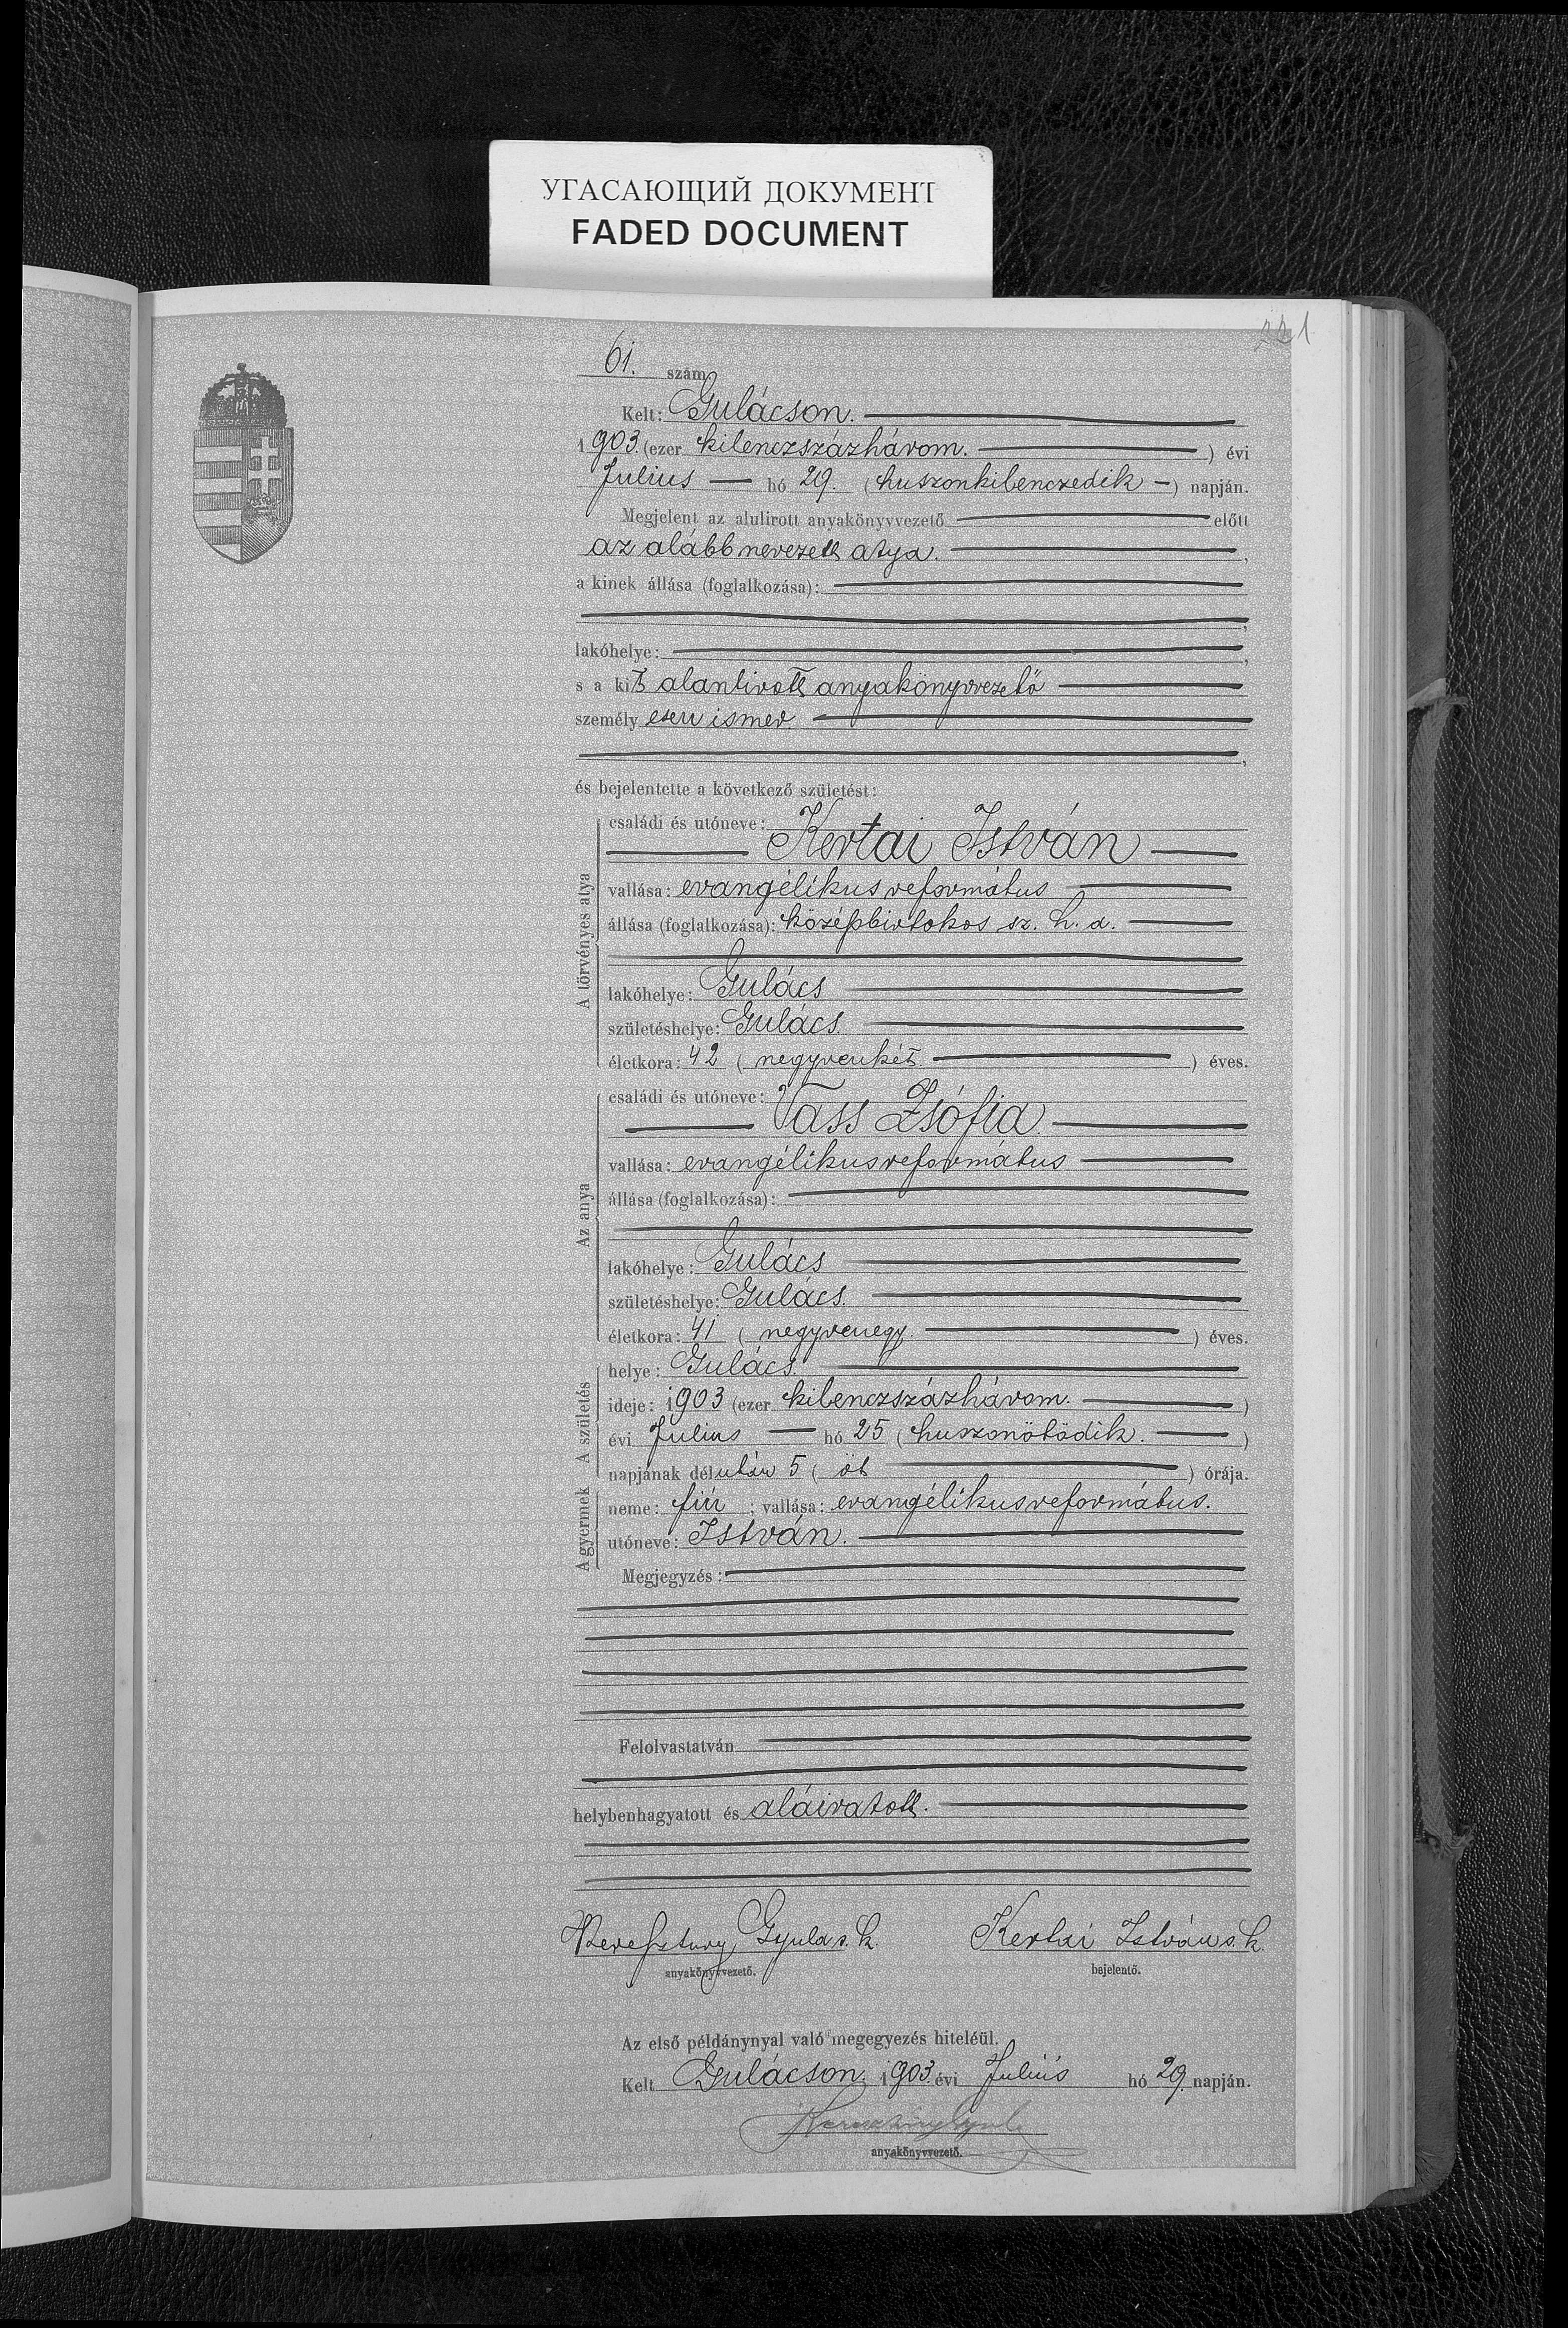 УГАСАЮЩИЙ ДОКУМЕНТ
FADED DOCUMENT
221
61. szám
Kelt: Gulácson.
1903. (ezer kilenczszázhárom. ) évi
Julius hó 29. (huszonkilenczedik ) napján.
Megjelent az alulirott anyakönyvvezető előtt
az alább nevezett atya.
a kinek állása (foglalkozása):
lakóhelye:
s a kit alantirott anyakönyvvezető
személyesen ismer.
és bejelentette a következő születést:
A törvényes atya
családi és utóneve:
Kertai István
vallása: evangélikusreformátus
állása (foglalkozása): középbirtokos sz. h. a.
lakóhelye: Gulács
születéshelye: Gulács.
életkora: 42 (negyvenkét. ) éves.
Az anya
családi és utóneve:
Vass Zsófia.
vallása: evangélikusreformátus
állása (foglalkozása):
lakóhelye: Gulács
születéshelye: Gulács.
életkora: 41 (negyvenegy. ) éves.
A születés
helye: Gulács.
ideje: 1903 (ezer kilenczszázhárom. )
évi Julius hó 25 (huszonötödik. )
napjának délután 5 (öt ) órája.
A gyermek
neme: fiú; vallása: evangélikusreformátus.
utóneve: István.
Megjegyzés:
Felolvastatván
helybenhagyatott és aláiratott.
Gyula s. k. Kertai István s. k.
anyakönyvvezető. bejelentő.
Az első példánynyal való megegyezés hiteléül.
Kelt Gulácson, 1903. évi Julius hó 29. napján.
anyakönyvvezető.